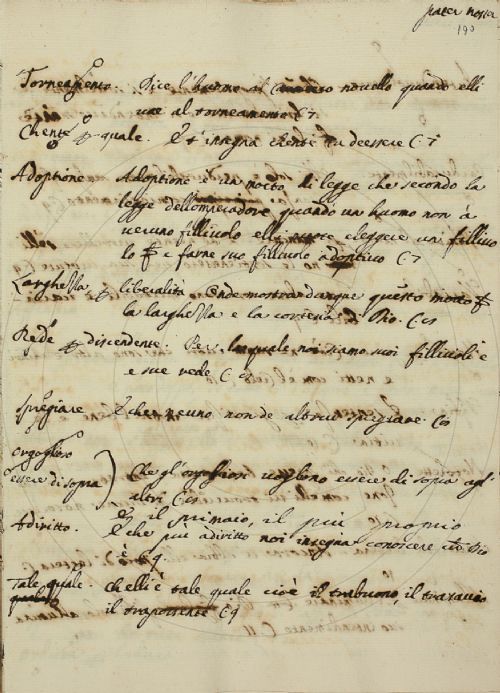 pater noster
190
Torneamento. Dice l'huomo al cavaliero novello quando elli
vae al torneamento C7
Chente p quale. E t'insegna chente tu dei essere C7
Adoptione Adoptione è un motto di legge che secondo la
legge dell'Imperadore quando un huomo non à
neruno filliuolo elli puote eleggere un filliuo
lo e farne suo filliuolo adoptivo C7
Larghessa p liberalità Onde mostra dunque questo motto
la larghessa e la cortesia di Dio. C15
Rede p discendente. Per la quale noi siamo suoi filliuoli e
e sue rede C
Spregiare E che neuno non de altrui spregiare. C
Orgoglioso
essere di sopra Che gl'orgogliosi vogliono essere di sopra agl'
altri C
Adiritto. E il primaio, il più proprio
E che più adiritto noi insegna conoscere Dio
è C9.
Tale quale. Ch'elli è tale quale cioè il trabuono, il trasavio
il trapossente C9